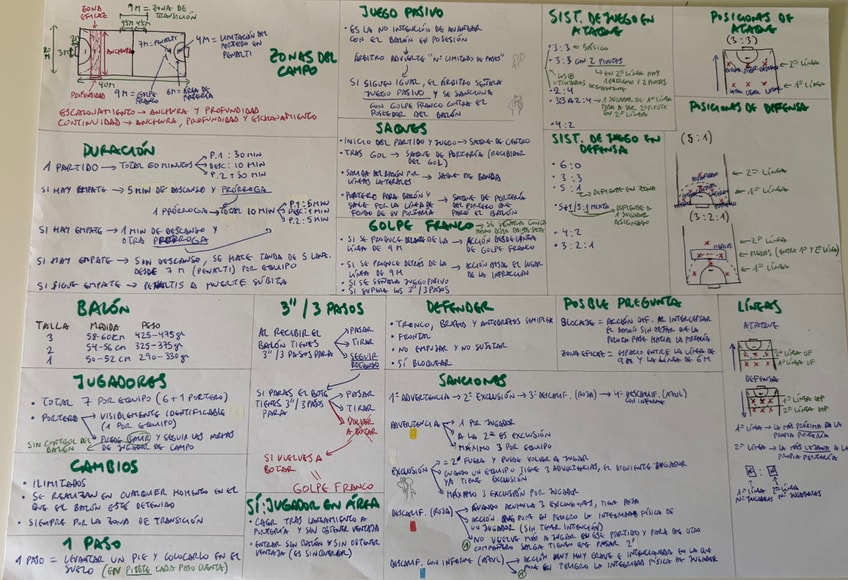 ZONA EFICAZ
9M = ZONA DE TRANSICIÓN
7M = PENALTI
4M = LIMITACIÓN DEL PORTERO EN PENALTI
3M
ANCHURA
ZONAS DEL CAMPO
40M
PROFUNDIDAD
9M = GOLPE FRANCO
6M = ÁREA DE PORTERÍA
ESCALONAMIENTO → ANCHURA Y PROFUNDIDAD
CONTINUIDAD → ANCHURA, PROFUNDIDAD Y ESCALONAMIENTO
DURACIÓN
1 PARTIDO → TOTAL 60 MINUTOS
P.1: 30 MIN
DESC: 10 MIN
P.2: 30 MIN
SI HAY EMPATE → 5 MIN DE DESCANSO Y PRÓRROGA
1 PRÓRROGA → TOTAL 10 MIN
P.1: 5 MIN
DESC: 1 MIN
P.2: 5 MIN
SI HAY EMPATE → 1 MIN DE DESCANSO Y OTRA PRÓRROGA
SI HAY EMPATE → SIN DESCANSO, SE HACE TANDA DE 5 LANZ.
DESDE 7 M (PENALTI) POR EQUIPO
SI SIGUE EMPATE → PENALTIS A MUERTE SÚBITA
JUEGO PASIVO
• ES LA NO INTENCIÓN DE AVANZAR
CON EL BALÓN EN POSESIÓN
ÁRBITRO ADVIERTE
SI SIGUEN IGUAL, EL ÁRBITRO SEÑALA
JUEGO PASIVO Y SE SANCIONA
CON GOLPE FRANCO CONTRA EL
POSEEDOR DEL BALÓN
SAQUES
• INICIO DEL PARTIDO Y JUEGO → SAQUE DE CENTRO
• TRAS GOL → SAQUE DE PORTERÍA (RECIBIDOR
DEL GOL)
• SALIDA DEL BALÓN POR LÍNEAS LATERALES → SAQUE DE BANDA
• PORTERO PARA BALÓN Y SALE POR LA LÍNEA DE FONDO DE SU PORTERÍA → SAQUE DE PORTERÍA DEL PORTERO QUE PARÓ EL BALÓN
GOLPE FRANCO
• SI SE PRODUCE DELANTE DE LA LÍNEA DE 9 M → ACCIÓN DESDE LÍNEA DE GOLPE FRANCO
• SI SE PRODUCE DETRÁS DE LA LÍNEA DE 9 M → ACCIÓN DESDE EL LUGAR DE LA INFRACCIÓN
• SI SE SEÑALA JUEGO PASIVO
• SI SUPERA LOS 3"/3 PASOS
SIST. DE JUEGO EN ATAQUE
• 3:3 → BÁSICO
• 3:3 CON 2 PIVOTES
• 2:4
• 3:3 A 2:4 → 1 JUGADOR DE 1ª LÍNEA
PASA A SER 2º PIVOTE
EN 2ª LÍNEA
• 4:2
SIST. DE JUEGO EN DEFENSA
• 6:0
• 3:3
• 5:1 → DEFIENDE EN ZONA
• 5+1/5:1 MIXTA → DEFIENDE A 1 JUGADOR ASIGNADO
• 4:2
• 3:2:1
POSICIONES DE ATAQUE
(3:3)
← 2ª LÍNEA
← 1ª LÍNEA
POSICIONES DE DEFENSA
(5:1)
← 2ª LÍNEA
← 1ª LÍNEA
(3:2:1)
← 2ª LÍNEA
← MEDIOS (ENTRE 1ª Y 2ª LÍNEA)
← 1ª LÍNEA
BALÓN
TALLA MEDIDA PESO
3 58-60cm 425-475gr
2 54-56cm 325-375gr
1 50-52cm 290-330gr
JUGADORES
• TOTAL 7 POR EQUIPO (6 + 1 PORTERO)
• PORTERO → VISIBLEMENTE IDENTIFICABLE
(1 POR EQUIPO)
SIN CONTROL DEL BALÓN
→ PUEDE SALIR Y SEGUIR LAS NORMAS
DE JUGADOR DE CAMPO
CAMBIOS
• ILIMITADOS
• SE REALIZAN EN CUALQUIER MOMENTO EN EL
QUE EL BALÓN ESTÉ DETENIDO
• SIEMPRE POR LA ZONA DE TRANSICIÓN
1 PASO
1 PASO = LEVANTAR UN PIE Y COLOCARLO EN EL
SUELO (EN PIVOTE CADA PASO CUENTA)
3" / 3 PASOS
AL RECIBIR EL
BALÓN TIENES
3"/3 PASOS PARA
PASAR
TIRAR
SEGUIR BOTANDO
SI PARAS EL BOTE
TIENES 3"/3 PASOS
PARA
PASAR
TIRAR
VOLVER A BOTAR
SI VUELVES A
BOTAR
GOLPE FRANCO
SÍ: JUGADOR EN ÁREA
• CAER TRAS LANZAMIENTO A
PORTERÍA Y SIN OBTENER VENTAJA
• ENTRAR SIN BALÓN Y SIN OBTENER
VENTAJA (ES SIN QUERER)
DEFENDER
• TRONCO, BRAZOS Y ANTEBRAZOS SEMIFLEX
• FRONTAL
• NO EMPUJAR Y NO SUJETAR
• SÍ BLOQUEAR
POSIBLE PREGUNTA
BLOCAJE = ACCIÓN DEF. AL INTERCEPTAR
EL BALÓN SIN DEJAR DE
PASE HACIA LA PORTERÍA
ZONA EFICAZ = ESPACIO ENTRE LA LÍNEA DE
9M Y LA LÍNEA DE 6M
SANCIONES
1ª ADVERTENCIA → 2ª EXCLUSIÓN → 3ª DESCALIF. (ROJA) → 4ª DESCALIF. (AZUL)
CON INFORME
ADVERTENCIA
→ 1 POR JUGADOR
→ A LA 2ª ES EXCLUSIÓN
→ MÁXIMO 3 POR EQUIPO
EXCLUSIÓN
→ 2' FUERA Y PUEDE VOLVER A JUGAR
→ CUANDO UN EQUIPO TIENE 3 ADVERTENCIAS, EL SIGUIENTE JUGADOR
YA TIENE EXCLUSIÓN
→ MÁXIMO 3 EXCLUSIÓN POR JUGADOR
DESCALIF. (ROJA)
→ CUANDO ACUMULA 3 EXCLUSIONES, TIENE ROJA
→ ACCIÓN QUE PONE EN PELIGRO LA INTEGRIDAD FÍSICA DE
UN JUGADOR (SIN TENER INTENCIÓN)
→ NO VUELVE MÁS A JUGAR EN ESE PARTIDO Y PARA QUE OTRO
COMPAÑERO SALGA TIENEN QUE PASAR 2'
DESCALIF. CON INFORME (AZUL)
→ ACCIÓN MUY MUY GRAVE E INTENCIONADA EN LA QUE
PONE EN PELIGRO LA INTEGRIDAD FÍSICA DE JUGADOR
LÍNEAS
ATAQUE
2ª LÍNEA OF
1ª LÍNEA OF
DEFENSA
1ª LÍNEA → LA MÁS PRÓXIMA A LA
PROPIA PORTERÍA
2ª LÍNEA → LA MÁS LEJANA A LA
PROPIA PORTERÍA
1ª LÍNEA
Nº JUGADORES
2ª LÍNEA
Nº JUGADORES